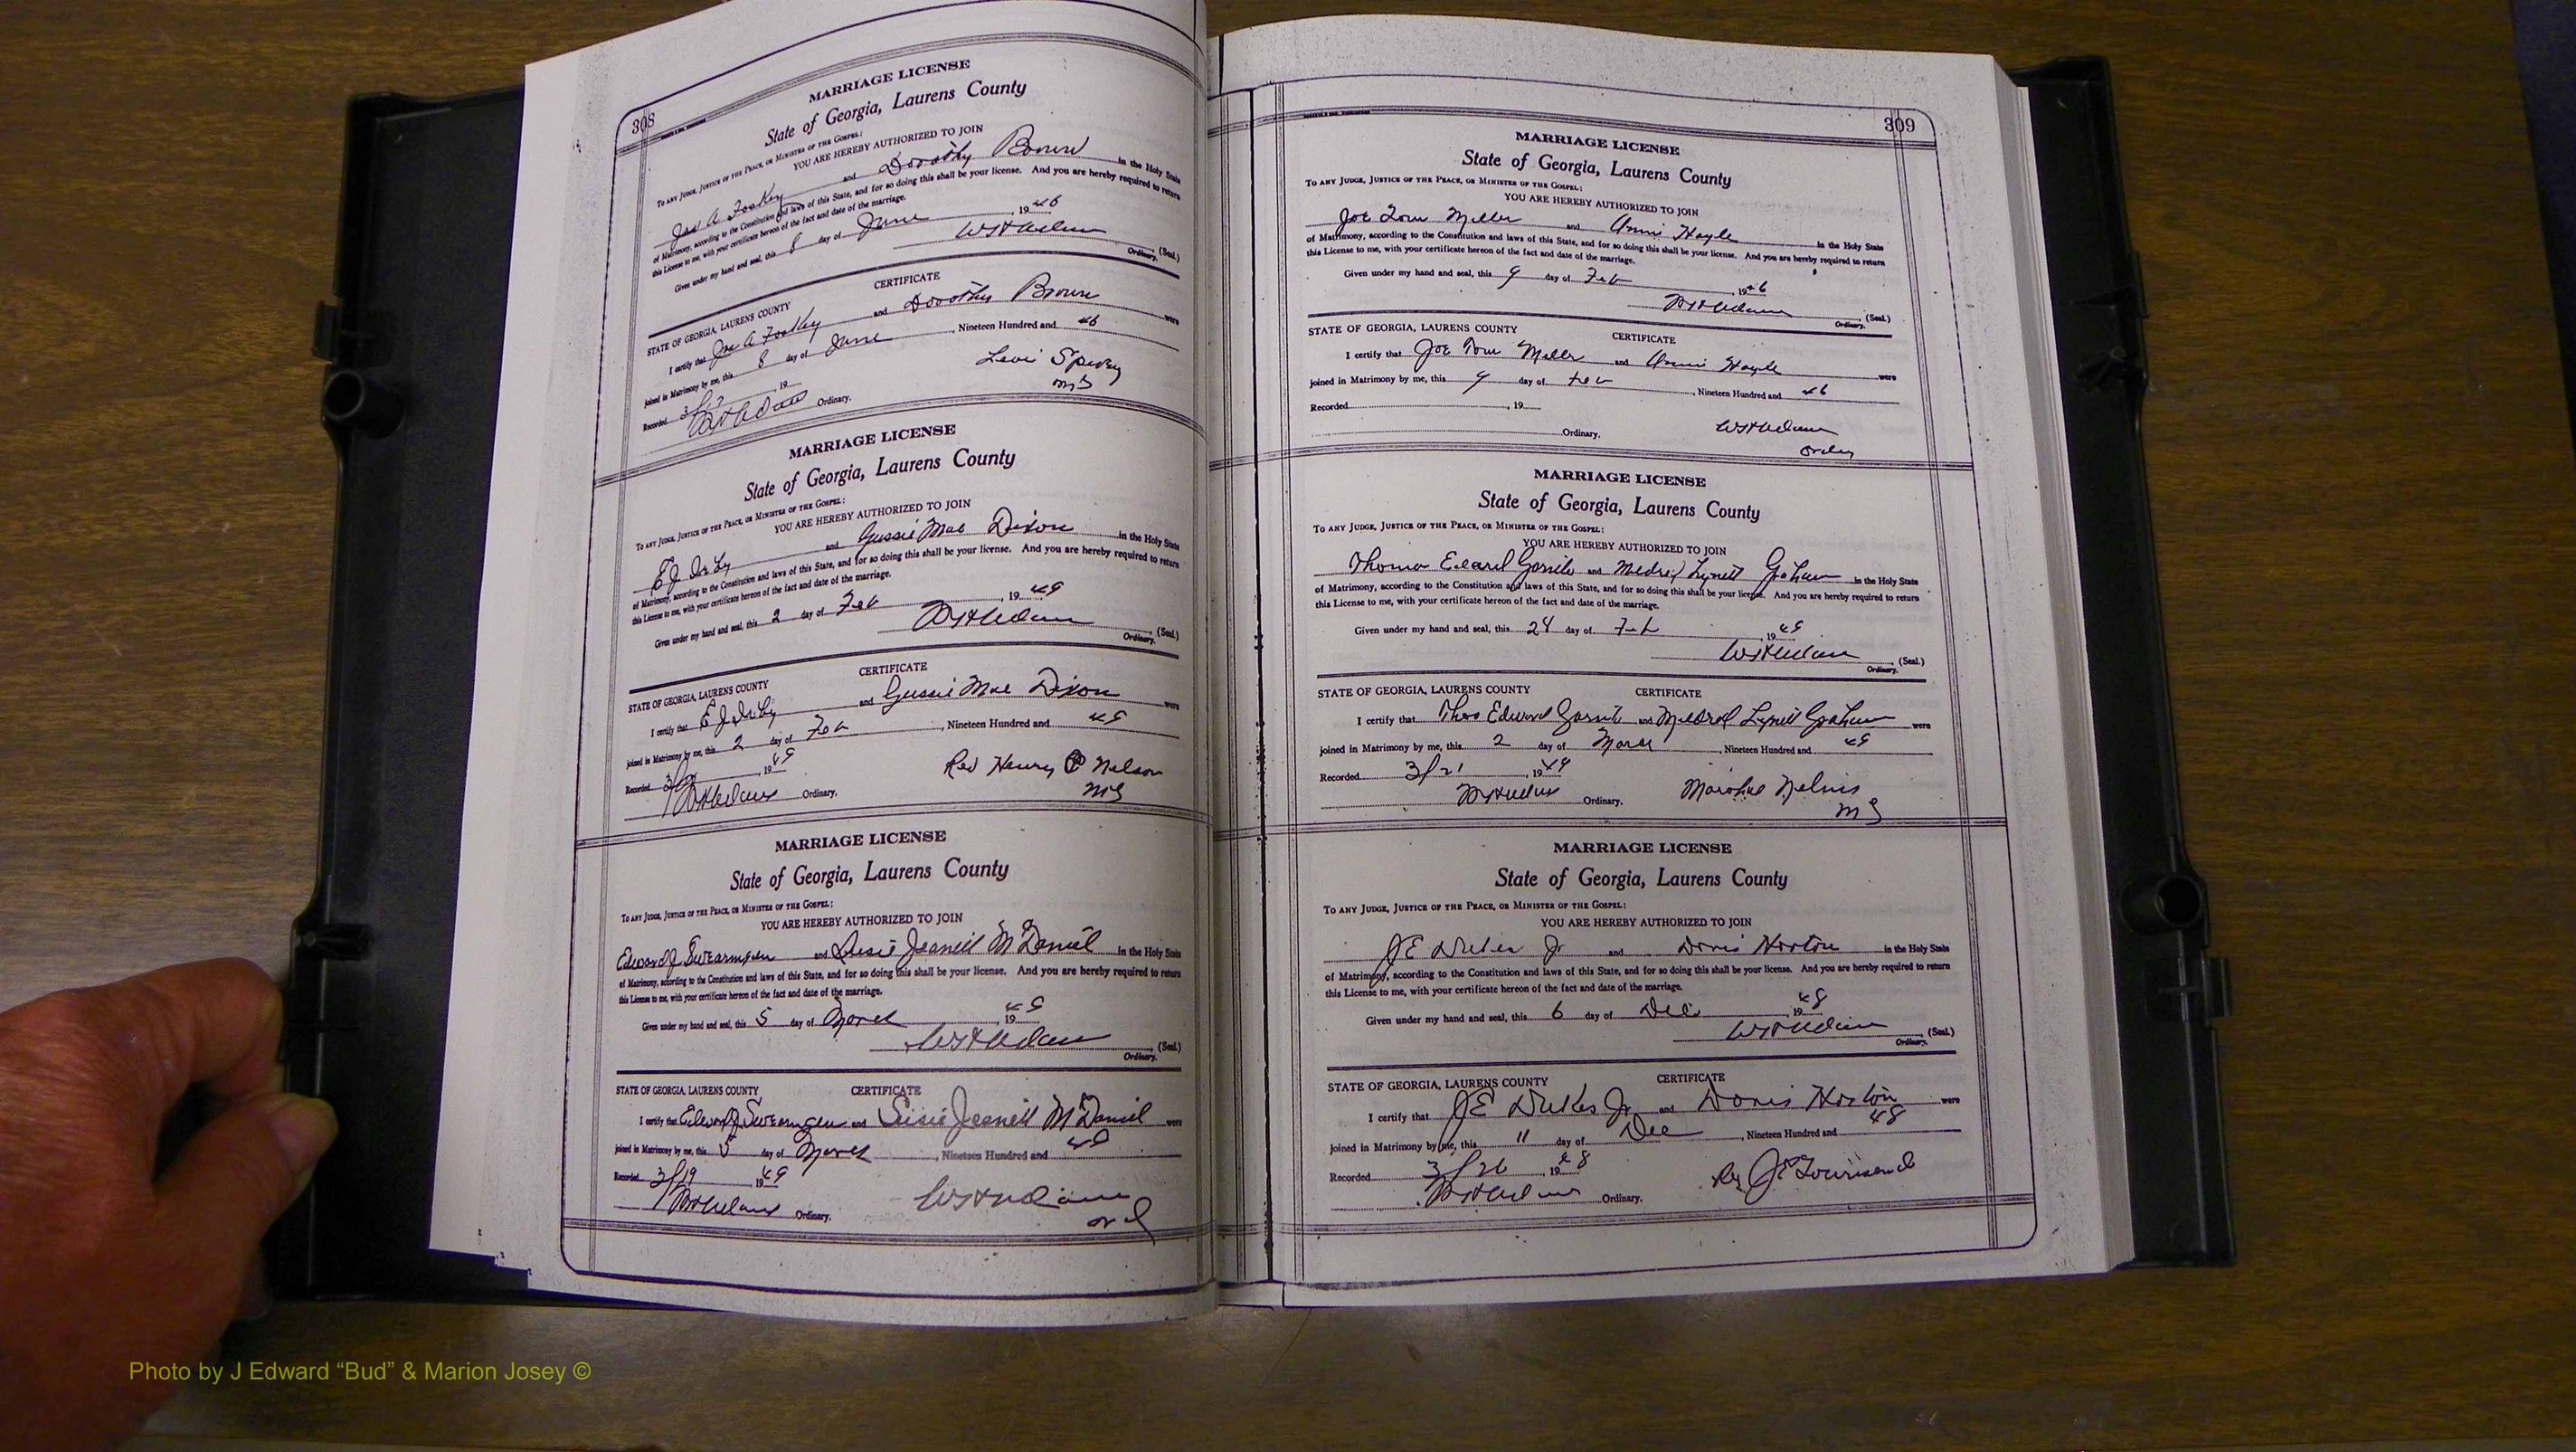 308
MARRIAGE LICENSE
State of Georgia, Laurens County
TO ANY JUDGE, JUSTICE OF THE PEACE, OR MINISTER OF THE GOSPEL:
YOU ARE HEREBY AUTHORIZED TO JOIN
A and Dorothy Brown in the Holy State
of Matrimony, according to the Constitution and laws of this State, and for so doing this shall be your license. And you are hereby required to return
this License to me, with your certificate hereon of the fact and date of the marriage.
Given under my hand and seal, this 8 day of June, 1946
(Seal.)
Ordinary.
CERTIFICATE
STATE OF GEORGIA, LAURENS COUNTY
I certify that A and Dorothy Brown were
joined in Matrimony by me, this 8 day of June, Nineteen Hundred and 46
Levi Spivey
Recorded 19
Ordinary.
MARRIAGE LICENSE
State of Georgia, Laurens County
TO ANY JUDGE, JUSTICE OF THE PEACE, OR MINISTER OF THE GOSPEL:
YOU ARE HEREBY AUTHORIZED TO JOIN
E J Irby and Gussie Mae Dixon in the Holy State
of Matrimony, according to the Constitution and laws of this State, and for so doing this shall be your license. And you are hereby required to return
this License to me, with your certificate hereon of the fact and date of the marriage.
Given under my hand and seal, this 2 day of Feb, 1949
(Seal.)
Ordinary.
CERTIFICATE
STATE OF GEORGIA, LAURENS COUNTY
I certify that E J Irby and Gussie Mae Dixon were
joined in Matrimony by me, this 2 day of Feb, Nineteen Hundred and 49
Rev Henry Nelson
MG
Recorded 1949
Ordinary.
MARRIAGE LICENSE
State of Georgia, Laurens County
TO ANY JUDGE, JUSTICE OF THE PEACE, OR MINISTER OF THE GOSPEL:
YOU ARE HEREBY AUTHORIZED TO JOIN
Edward J Swearingen and Jeanell McDaniel in the Holy State
of Matrimony, according to the Constitution and laws of this State, and for so doing this shall be your license. And you are hereby required to return
this License to me, with your certificate hereon of the fact and date of the marriage.
Given under my hand and seal, this 5 day of March, 1949
(Seal.)
Ordinary.
STATE OF GEORGIA, LAURENS COUNTY CERTIFICATE
I certify that Edward J Swearingen and Jeanell McDaniel were
joined in Matrimony by me, this 5 day of March, Nineteen Hundred and 49
Recorded 3/19 1949
Ordinary.
309
MARRIAGE LICENSE
State of Georgia, Laurens County
TO ANY JUDGE, JUSTICE OF THE PEACE, OR MINISTER OF THE GOSPEL:
YOU ARE HEREBY AUTHORIZED TO JOIN
Joe Tom Miller and Annie in the Holy State
of Matrimony, according to the Constitution and laws of this State, and for so doing this shall be your license. And you are hereby required to return
this License to me, with your certificate hereon of the fact and date of the marriage.
Given under my hand and seal, this 9 day of Feb, 1946
(Seal.)
Ordinary.
STATE OF GEORGIA, LAURENS COUNTY CERTIFICATE
I certify that Joe Tom Miller and Annie were
joined in Matrimony by me, this 9 day of Feb, Nineteen Hundred and 46
Recorded, 19
Ordinary.
MARRIAGE LICENSE
State of Georgia, Laurens County
TO ANY JUDGE, JUSTICE OF THE PEACE, OR MINISTER OF THE GOSPEL:
YOU ARE HEREBY AUTHORIZED TO JOIN
Thomas Edward and Mildred Lynell Graham in the Holy State
of Matrimony, according to the Constitution and laws of this State, and for so doing this shall be your license. And you are hereby required to return
this License to me, with your certificate hereon of the fact and date of the marriage.
Given under my hand and seal, this 24 day of Feb, 1949
(Seal.)
Ordinary.
STATE OF GEORGIA, LAURENS COUNTY CERTIFICATE
I certify that Thos Edward and Mildred Lynell Graham were
joined in Matrimony by me, this 2 day of March, Nineteen Hundred and 49
Recorded 3/21, 1949
Ordinary. Marshal Nelms
MG
MARRIAGE LICENSE
State of Georgia, Laurens County
TO ANY JUDGE, JUSTICE OF THE PEACE, OR MINISTER OF THE GOSPEL:
YOU ARE HEREBY AUTHORIZED TO JOIN
J E Dukes Jr and Doris Horton in the Holy State
of Matrimony, according to the Constitution and laws of this State, and for so doing this shall be your license. And you are hereby required to return
this License to me, with your certificate hereon of the fact and date of the marriage.
Given under my hand and seal, this 6 day of Dec, 1948
(Seal.)
Ordinary.
STATE OF GEORGIA, LAURENS COUNTY CERTIFICATE
I certify that J E Dukes Jr and Doris Horton were
joined in Matrimony by me, this 11 day of Dec, Nineteen Hundred and 48
Recorded 3/26, 1948
Ordinary. J E Townsend
Photo by J Edward “Bud” & Marion Josey ©